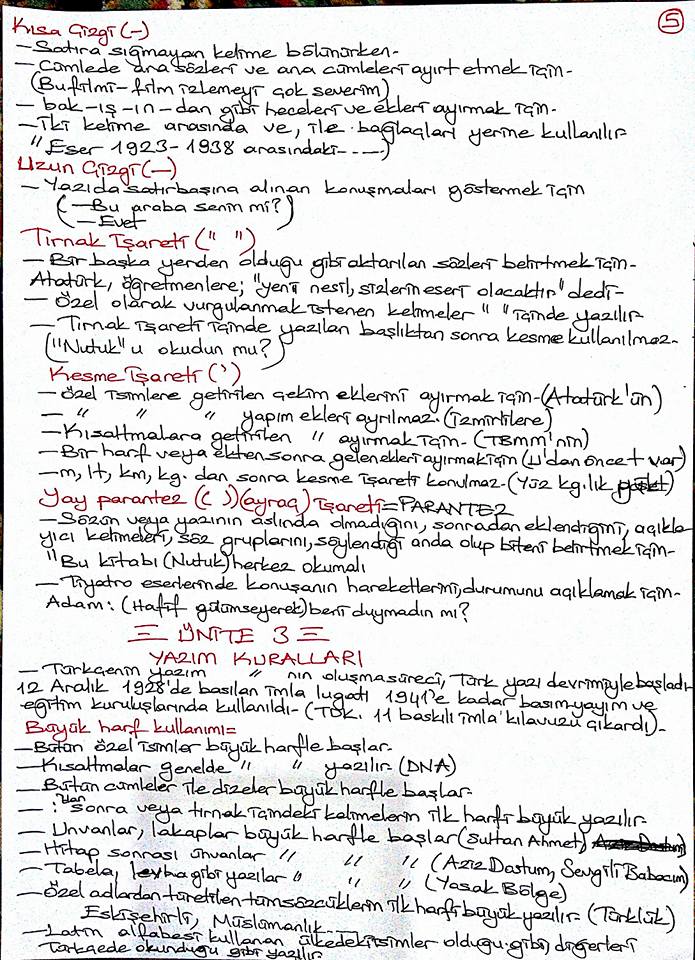 5
Kısa Çizgi (-)
- Satıra sığmayan kelime bölünürken-
- Cümlede ara sözleri ve ara cümleleri ayırt etmek için-
(Bu filmi-film izlemeyi çok severim)
- bak-ış-ın-dan gibi heceleri ve ekleri ayırmak için-
- İki kelime arasında ve, ile bağlaçları yerine kullanılır
"Eser 1923-1938 arasındaki-----)
Uzun Çizgi (—)
- Yazıda satırbaşına alınan konuşmaları göstermek için
(-Bu araba senin mi?)
-Evet
Tırnak İşareti (" ")
- Bir başka yerden olduğu gibi aktarılan sözleri belirtmek için-
Atatürk, öğretmenlere; "yeni nesil, sizlerin eseri olacaktır" dedi-
- Özel olarak vurgulanmak istenen kelimeler " " içinde yazılır
- Tırnak işareti içinde yazılan başlıktan sonra kesme kullanılmaz-
("Nutuk"u okudun mu?)
Kesme İşareti (')
- özel isimlere getirilen çekim eklerini ayırmak için-(Atatürk'ün)
- " " " yapım ekleri ayrılmaz. (İzmirlilere)
- Kısaltmalara getirilen " ayırmak için- (TBMM'nin)
- Bir harf veya ekten sonra gelen ekleri ayırmak için (Lı'dan önce t var)
- m, lt, km, kg. dan sonra kesme işareti konulmaz-(Yüz kg.lık
Yay parantez ( ) (ayraç) İşareti=PARANTEZ
- Sözün veya yazının aslında olmadığını, sonradan eklendiğini, açıkla
yıcı kelimeleri, söz gruplarını, söylendiği anda olup biteni belirtmek için-
"Bu kitabı (Nutuk) herkez okumalı
- Tiyatro eserlerinde konuşanın hareketlerini, durumunu açıklamak için-
Adam: (Hafif gülümseyerek) beni duymadın mı?
ÜNİTE 3
YAZIM KURALLARI
- Türkçenin yazım " nın oluşma süreci, Türk yazı devrimiyle başladı
12 Aralık 1928'de basılan imla lugatı 1941'e kadar basım-yayım ve
eğitim kuruluşlarında kullanıldı- (TDK. 11 baskılı imla kılavuzu çıkardı)-
Büyük harf kullanımı=
- Bütün özel isimler büyük harfle başlar-
- Kısaltmalar genelde " " yazılır (DNA)
- Bütün cümleler ile dizeler büyük harfle başlar-
- : 'dan sonra veya tırnak içindeki kelimelerin ilk harfi büyük yazılır
- Unvanlar, lakaplar büyük harfle başlar (Sultan Ahmet,
- Hitap sonrası ünvanlar " " " (Aziz Dostum, Sevgili Babacım)
- Tabela, levha gibi yazılar " " " (Yasak Bölge)
- Özel adlardan türetilen tüm sözcüklerin ilk harfi büyük yazılır (Türklük)
Eskişehirli, Müslümanlık...
- Latin alfabesi kullanan ülkedeki isimler olduğu gibi, diğerleri
Türkçede okunduğu gibi yazılır